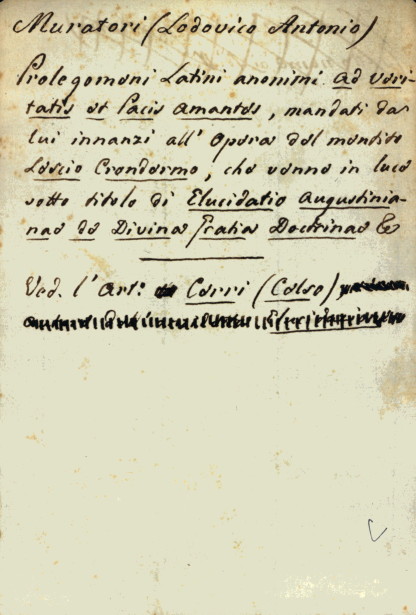 Muratori (Lodovico Antonio)
Prolegomeni Latini anonimi ad veri-
tatis et Pacis Amantes, mandati da
lui innanzi all' Opera del mentito
Lescio Crondermo, che venne in luce
sotto titolo di Elucidatio Augustinia-
nae de Divina Gratia Doctrinae &c
Ved. l'Art.° Cerri (Celso)